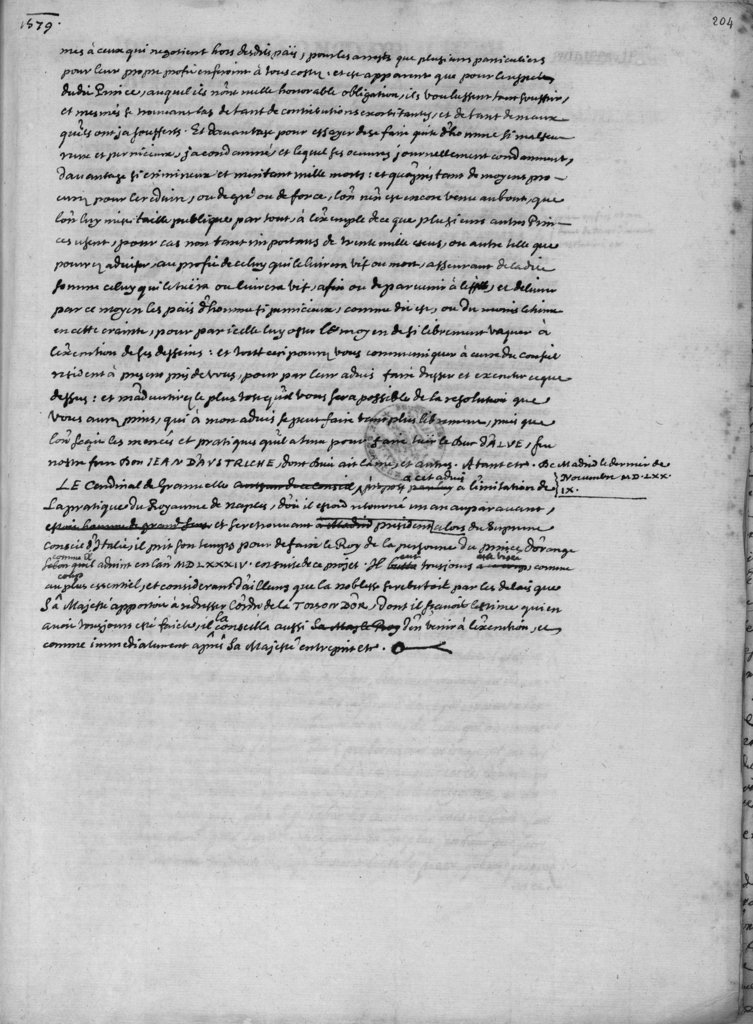 1579.
204
mes à ceux qui negotient hors desdits païs, pour les arrests que plusieurs particuliers
pour leur propre profit enferoint à vous couster: et est apparent que pour le respect
dudit Prince, auquel ils n'ont nulle honorable obligation, ils voulussent tant souffrir,
et mesmes se trouvant las de tant de contributions exorbitantes, et de tant de maux
qu'ils ont ja soufferts. Et davantage pour essayer de se faire quite d'homme si malheu-
reux et pernicieux, ja condamné, et lequel ses oeuvres journellement condamnent,
davantage si crimineux et meritant mille morts: et qu'apres tant de moyens pro-
curez pour le reduire, ou de gré ou de force, l'on n'en est encore venu au bout, que
l'on luy mist taille publique par tout, à l'exemple de ce que plusieurs autres Prin-
ces usent, pour cas non tant importans de trente mille escus, ou autre telle que
pourrez adviser, au profit de celuy qui le livrera vif ou mort, asseurant de ladite
somme celuy qui le tuëra ou livrera vif, afin ou de parvenir à l'effect, et delivrer
par ce moyen les païs d'homme si pernicieux, comme dit est, ou du moins le tenir
en cette crainte, pour par icelle luy oster le moyen de si librement vaquer à
l'execution de ses desseins: et tout ceci pourrez vous communiquer à ceux du Conseil
resident à present prés de vous, pour par leur advis faire dresser et executer ce que
dessus: et m'advertirez le plus tost qu'il vous sera possible de la resolution que
vous aurez prins, qui à mon advis se peut faire tant plus librement, puis que
l'on sçait les menées et pratiques qu'il a tenu pour faire tuer le Duc D'ALVE, feu
nostre frere Don JEAN D'AUSTRICHE, dont Dieu ait l'ame, et autres. Atant etc. De Madrid le dernier de
Novembre MD.LXX.
IX.
LE Cardinal de Granvelle à cet advis à l'imitation de
la pratique du Royaume de Naples, d'où il estoit retourné un an auparavant,
et se retrouvant president alors du Supreme
conseil d'Italie, il prit son temps pour defaire le Roy de la personne du prince d'Orange
comme il
selon qu'il advint en l'an MDLXXXIV. ensuite de ce projet. Il tousjours comme
coup
au plus essentiel, et considerant d'ailleurs que la noblesse se rebutoit par les delais que
Sa Majesté apportoit à redresser l'ordre de la TOISON D'OR, dont il sçavoit l'estime qui en
avoit tousjours esté faicte, il la conseilla aussi d'en venir à l'execution, ce
comme immediatement aprés Sa Majesté entreprint etc.